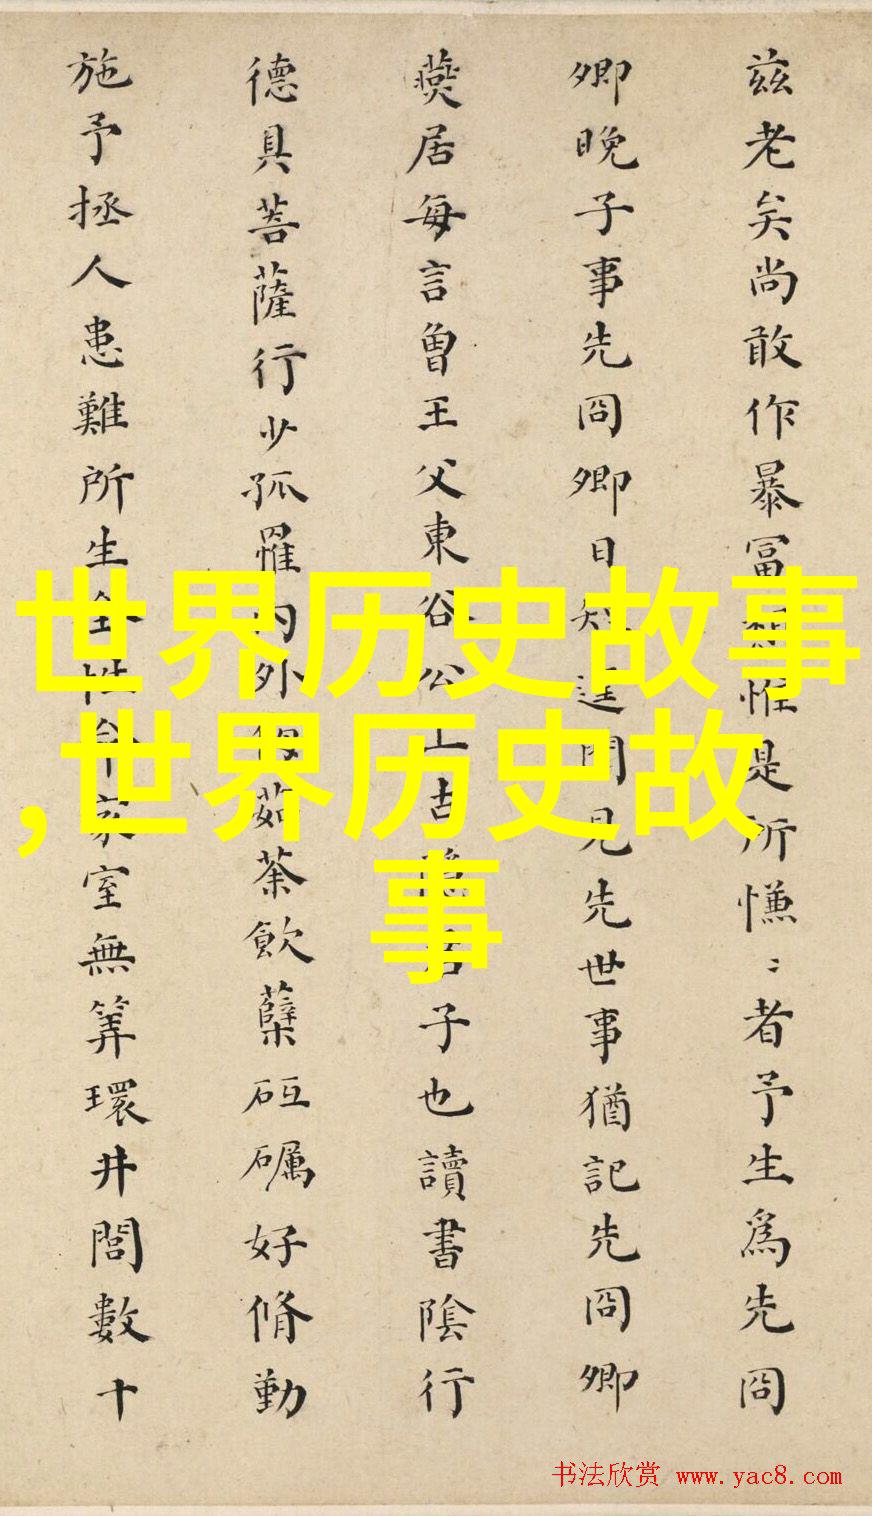 兹老矣尚敢作暴富惟是所慊〻者予生為先冏
卿晚子事先冏卿日短遑聞見先世事猶記先冏卿
燕居每言曾王父東谷公上吉子也讀書陰行
德具菩薩行少孤罹内外茹荼飲蘖砥礪好脩勤
施予拯人患難所生全性命家室無筭環井閭數十
世界历史故事
,世界历史故
事
书法欣赏 www.yac8.com